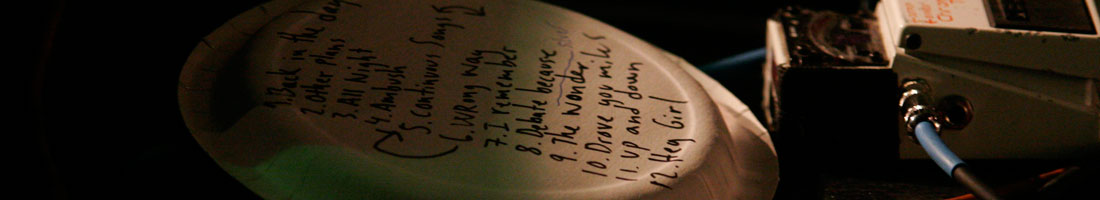 1. Back in the day
2. Other plans
3. All Night
4. Ambush
5. Continuous Songs
6. Wrong way
7. I remember
8. Debate because
9. The Wonder
10. Drove you miles
11. Up and down
12. Hey Girl